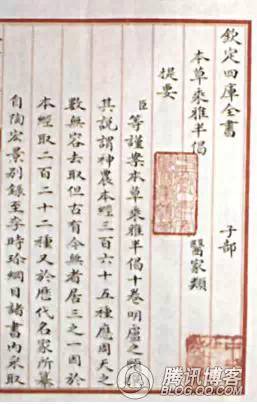 欽定四庫全書 子部
本草乘雅半偈 醫家類
提要
臣等謹案本草乘雅半偈十卷明盧之頤
其說謂神農本經三百六十五種應周天之
數無容去取但古有今無者居三之一因於
本經取二百二十二種又於歷代名家所纂
自陶宏景別錄至李時珍綱目諸書內采取
腾讯博客